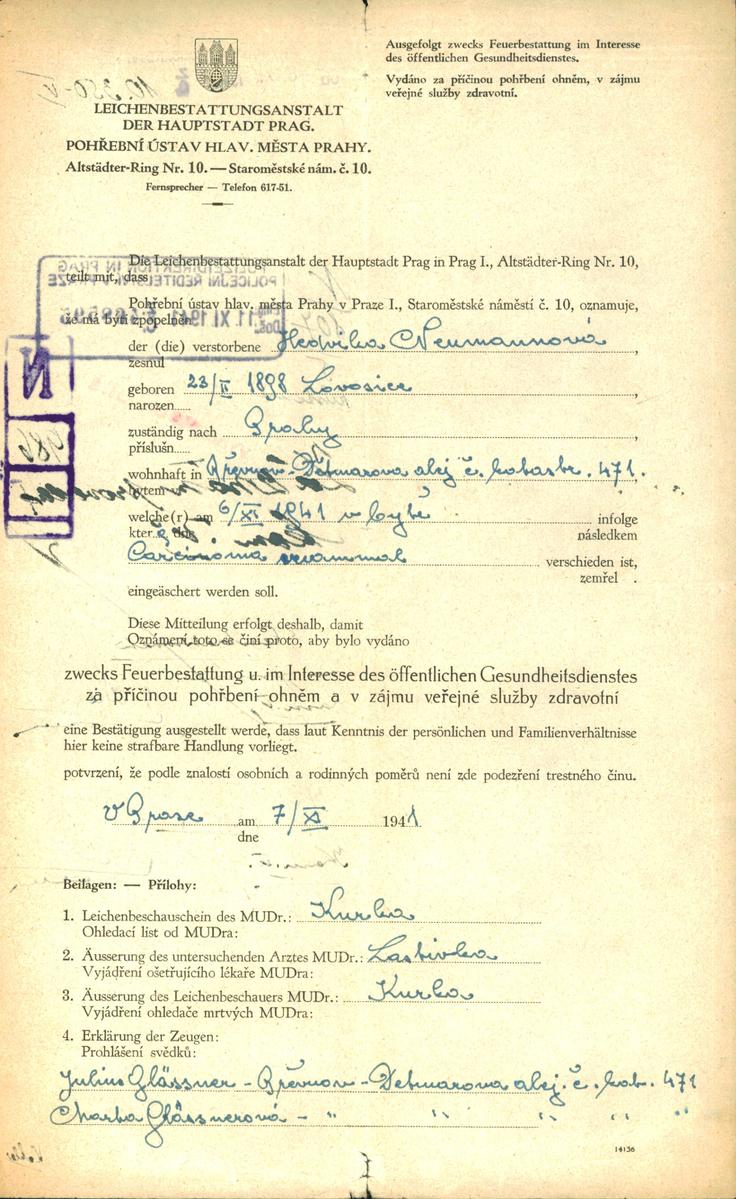 Ausgefolgt zwecks Feuerbestattung im Interesse
des öffentlichen Gesundheitsdienstes.
Vydáno za příčinou pohřbení ohněm, v zájmu
veřejné služby zdravotní.
LEICHENBESTATTUNGSANSTALT
DER HAUPTSTADT PRAG.
POHŘEBNÍ ÚSTAV HLAV. MĚSTA PRAHY.
Altstädter-Ring Nr. 10. — Staroměstské nám. č. 10.
Fernsprecher — Telefon 617-51.
Die Leichenbestattungsanstalt der Hauptstadt Prag in Prag I., Altstädter-Ring Nr. 10,
teilt mit, dass
Pohřební ústav hlav. města Prahy v Praze I., Staroměstské náměstí č. 10, oznamuje,
že má býti zpopelněn
der (die) verstorbene Hedvika Neumannová,
zesnul
geboren 23/II 1898 Lovosice,
narozen
zuständig nach Prahy,
příslušn
wohnhaft in Břevnov-Detmarova alej č. katastr. 471.
bytem
welche(r) am 6/XI 1941 v bytě infolge
kter dne následkem
Carcinoma mammae verschieden ist,
zemřel.
eingeäschert werden soll.
Diese Mitteilung erfolgt deshalb, damit
Oznámení toto se činí proto, aby bylo vydáno
zwecks Feuerbestattung u. im Interesse des öffentlichen Gesundheitsdienstes
za příčinou pohřbení ohněm a v zájmu veřejné služby zdravotní
eine Bestätigung ausgestellt werde, dass laut Kenntnis der persönlichen und Familienverhältnisse
hier keine strafbare Handlung vorliegt.
potvrzení, že podle znalostí osobních a rodinných poměrů není zde podezření trestného činu.
V Praze am 7/XI 1941
dne
Beilagen: — Přílohy:
1. Leichenbeschauschein des MUDr.: Kurka
Ohledací list od MUDra:
2. Äusserung des untersuchenden Arztes MUDr.: Lastivka
Vyjádření ošetřujícího lékaře MUDra:
3. Äusserung des Leichenbeschauers MUDr.: Kurka
Vyjádření ohledače mrtvých MUDra:
4. Erklärung der Zeugen:
Prohlášení svědků:
Julius Glässner - Břevnov - Detmarova alej. č. kat. 471
Marta Glässnerová - " " " " "
14136